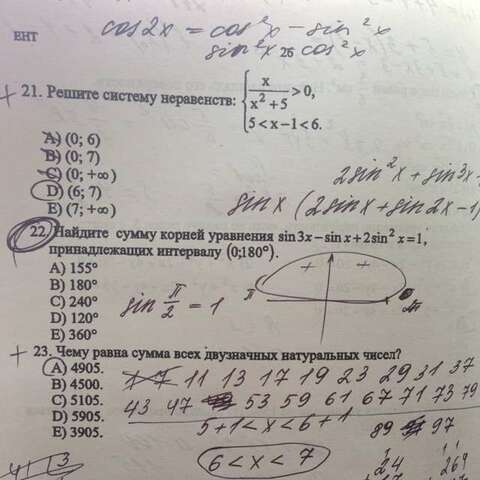 ЕНТ
cos2x = cos²x - sin²x
sin²x 26 cos²x
+ 21. Решите систему неравенств: { x/(x²+5) > 0,
5 < x-1 < 6.
A) (0; 6)
B) (0; 7)
C) (0; +∞)
D) (6; 7)
E) (7; +∞)
2sin²x + sin3x
sinx (2sinx + sin2x - 1)
22. Найдите сумму корней уравнения sin3x - sinx + 2sin²x = 1,
принадлежащих интервалу (0;180°).
A) 155°
B) 180°
C) 240°
D) 120°
E) 360°
sin π/2 = 1
+ +
π 2π
+ 23. Чему равна сумма всех двузначных натуральных чисел?
A) 4905.
B) 4500.
C) 5105.
D) 5905.
E) 3905.
11 13 17 19 23 29 31 37
43 47 53 59 61 67 71 73 79
5+1 < x < 6+1
89 97
6 < x < 7
24 264